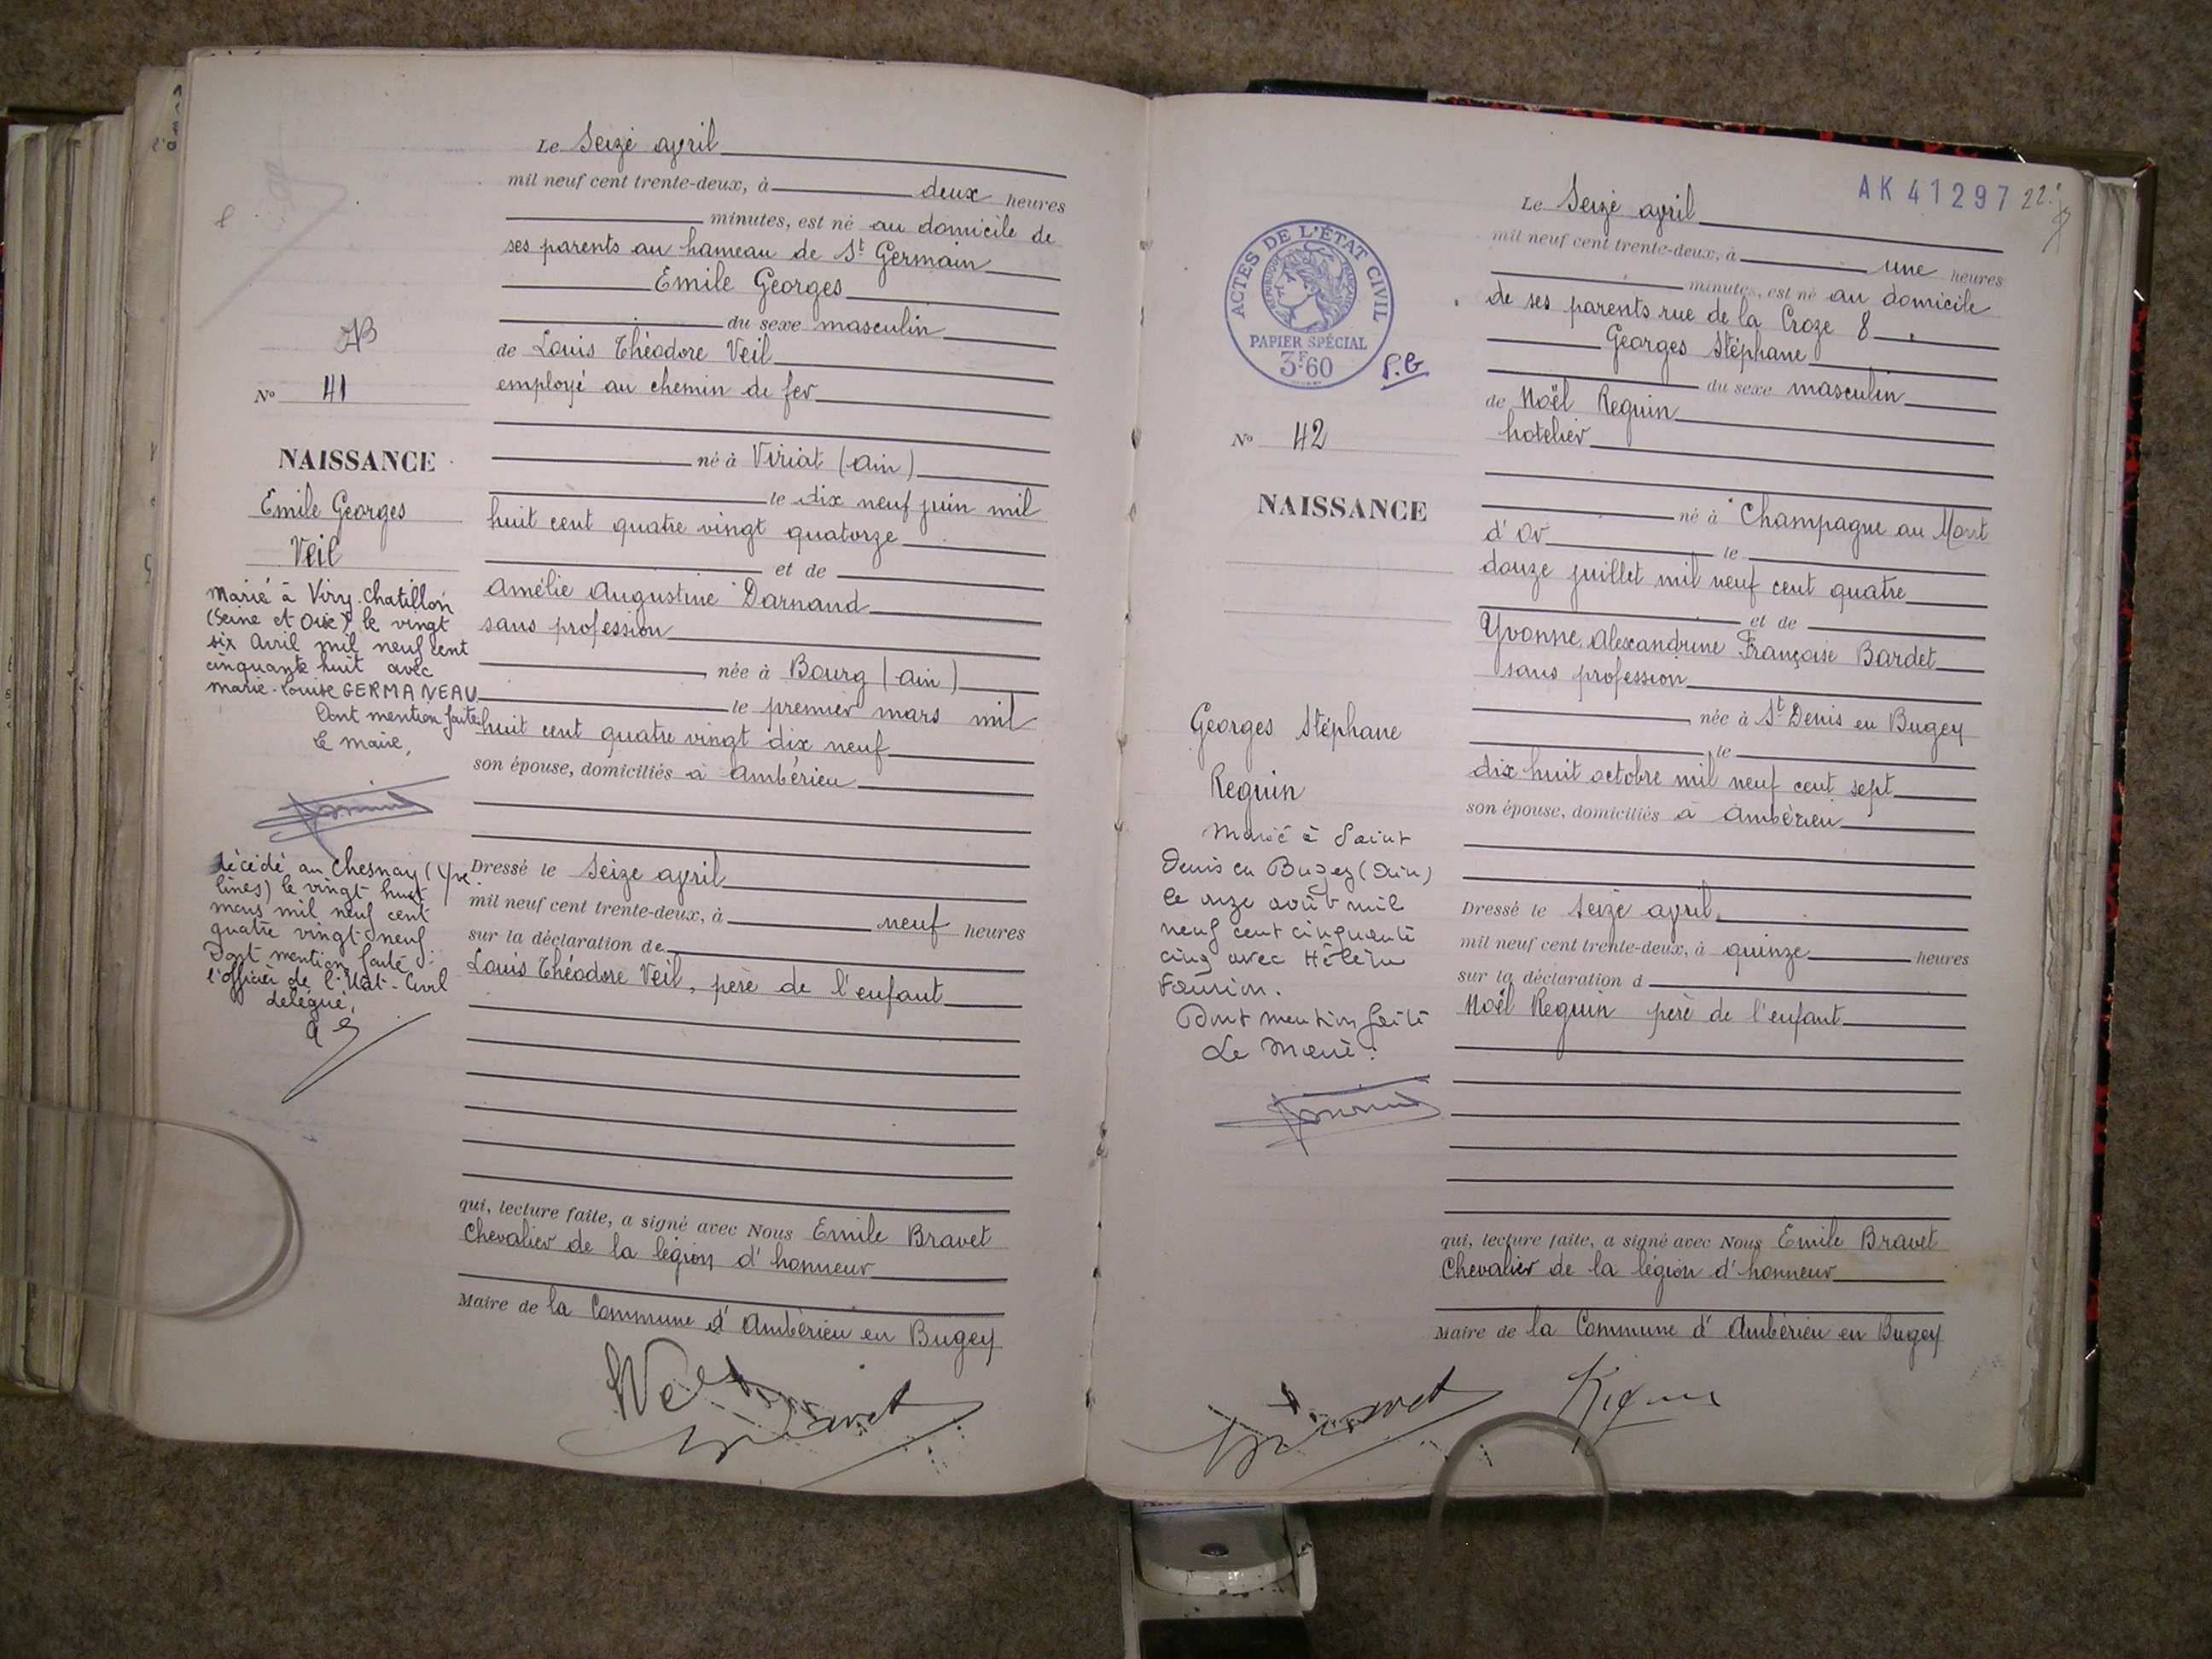 Le Seize avril
mil neuf cent trente-deux, à deux heures
minutes, est né au domicile de
ses parents au hameau de St Germain
Emile Georges
du sexe masculin
de Louis Théodore Veil
employé au chemin de fer
né à Viriat (Ain)
le dix neuf juin mil
huit cent quatre vingt quatorze
et de
Amélie Augustine Darnand
sans profession
née à Bourg (Ain)
le premier mars mil
huit cent quatre vingt dix neuf
son épouse, domiciliés à Ambérieu
Dressé le Seize avril
mil neuf cent trente-deux, à neuf heures
sur la déclaration de
Louis Théodore Veil, père de l'enfant
qui, lecture faite, a signé avec Nous Emile Bravet
Chevalier de la légion d'honneur
Maire de la Commune d'Ambérieu en Bugey
Veil
Bravet
No 41
NAISSANCE
Emile Georges
Veil
Marié à Viry-Chatillon
(Seine et Oise) le vingt
six Avril mil neuf cent
cinquante huit avec
Marie-Louise GERMANEAU
Dont mention faite
Le Maire,
Décédé au Chesnay (Yve
lines) le vingt huit
mars mil neuf cent
quatre vingt neuf.
Dont mention faite
l'officier de l'Etat-Civil
délégué,
AK 41297 22
Le Seize avril
mil neuf cent trente-deux, à une heures
minutes, est né au domicile
de ses parents rue de la Croze 8
Georges Stéphane
du sexe masculin
de Noël Reguin
hotelier
né à Champagne au Mont
d'Or le
douze juillet mil neuf cent quatre
et de
Yvonne Alexandrine Françoise Bardet
sans profession
née à St Denis en Bugey
le
dix huit octobre mil neuf cent sept
son épouse, domiciliés à Ambérieu
Dressé le Seize avril
mil neuf cent trente-deux, à quinze heures
sur la déclaration d
Noël Reguin père de l'enfant
qui, lecture faite, a signé avec Nous Emile Bravet
Chevalier de la légion d'honneur
Maire de la Commune d'Ambérieu en Bugey
Bravet
ACTES DE L'ÉTAT CIVIL
RÉPUBLIQUE FRANÇAISE
PAPIER SPÉCIAL
3F60
P.G
No 42
NAISSANCE
Georges Stéphane
Reguin
Marié à Saint
Denis en Bugey (Ain)
le onze août mil
neuf cent cinquante
cinq avec Hélène
Dont mention faite
Le Maire :